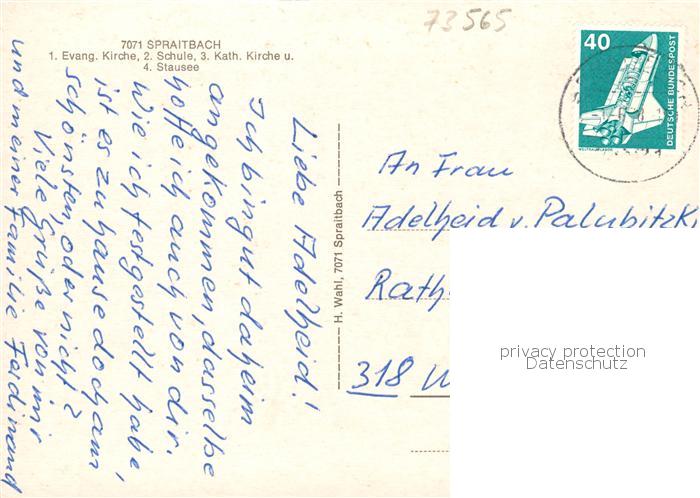 73565
7071 SPRAITBACH
1. Evang. Kirche, 2. Schule, 3. Kath. Kirche u.
4. Stausee
Liebe Adelheid!
Ich bin gut daheim
angekommen, dasselbe
hoffe ich auch von dir.
Wie ich festgestellt habe,
ist es zu hause doch am
schönsten, oder nicht?
Viele Grüße von mir
und meiner Familie Ferdinand
H. Wahl, 7071 Spraitbach
40
DEUTSCHE BUNDESPOST
WELTRAUMLABOR
An Frau
Adelheid v. Palubitzki
Rath
318 W
privacy protection
Datenschutz